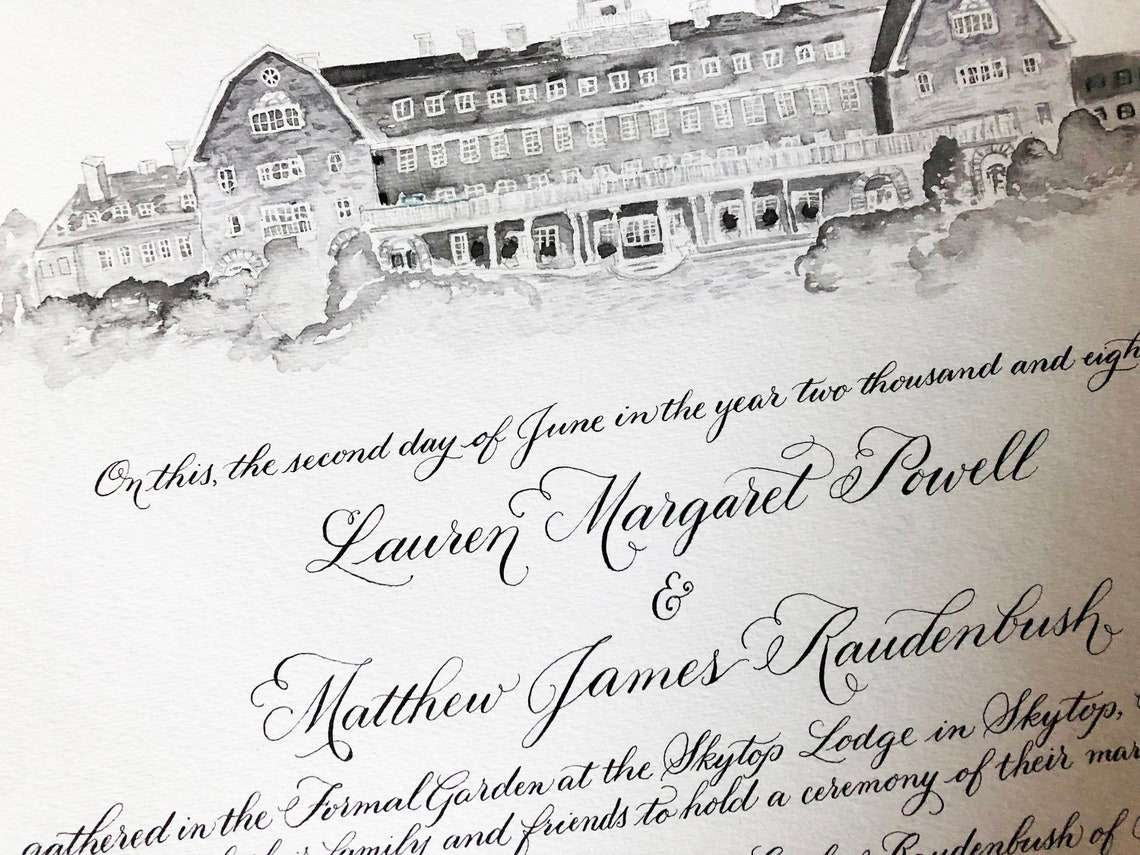 On this, the second day of June in the year two thousand and eigh
Lauren Margaret Powell
&
Matthew James Raudenbush
gathered in the Formal Garden at the Skytop Lodge in Skytop,
family and friends to hold a ceremony of their mar
Raudenbush of